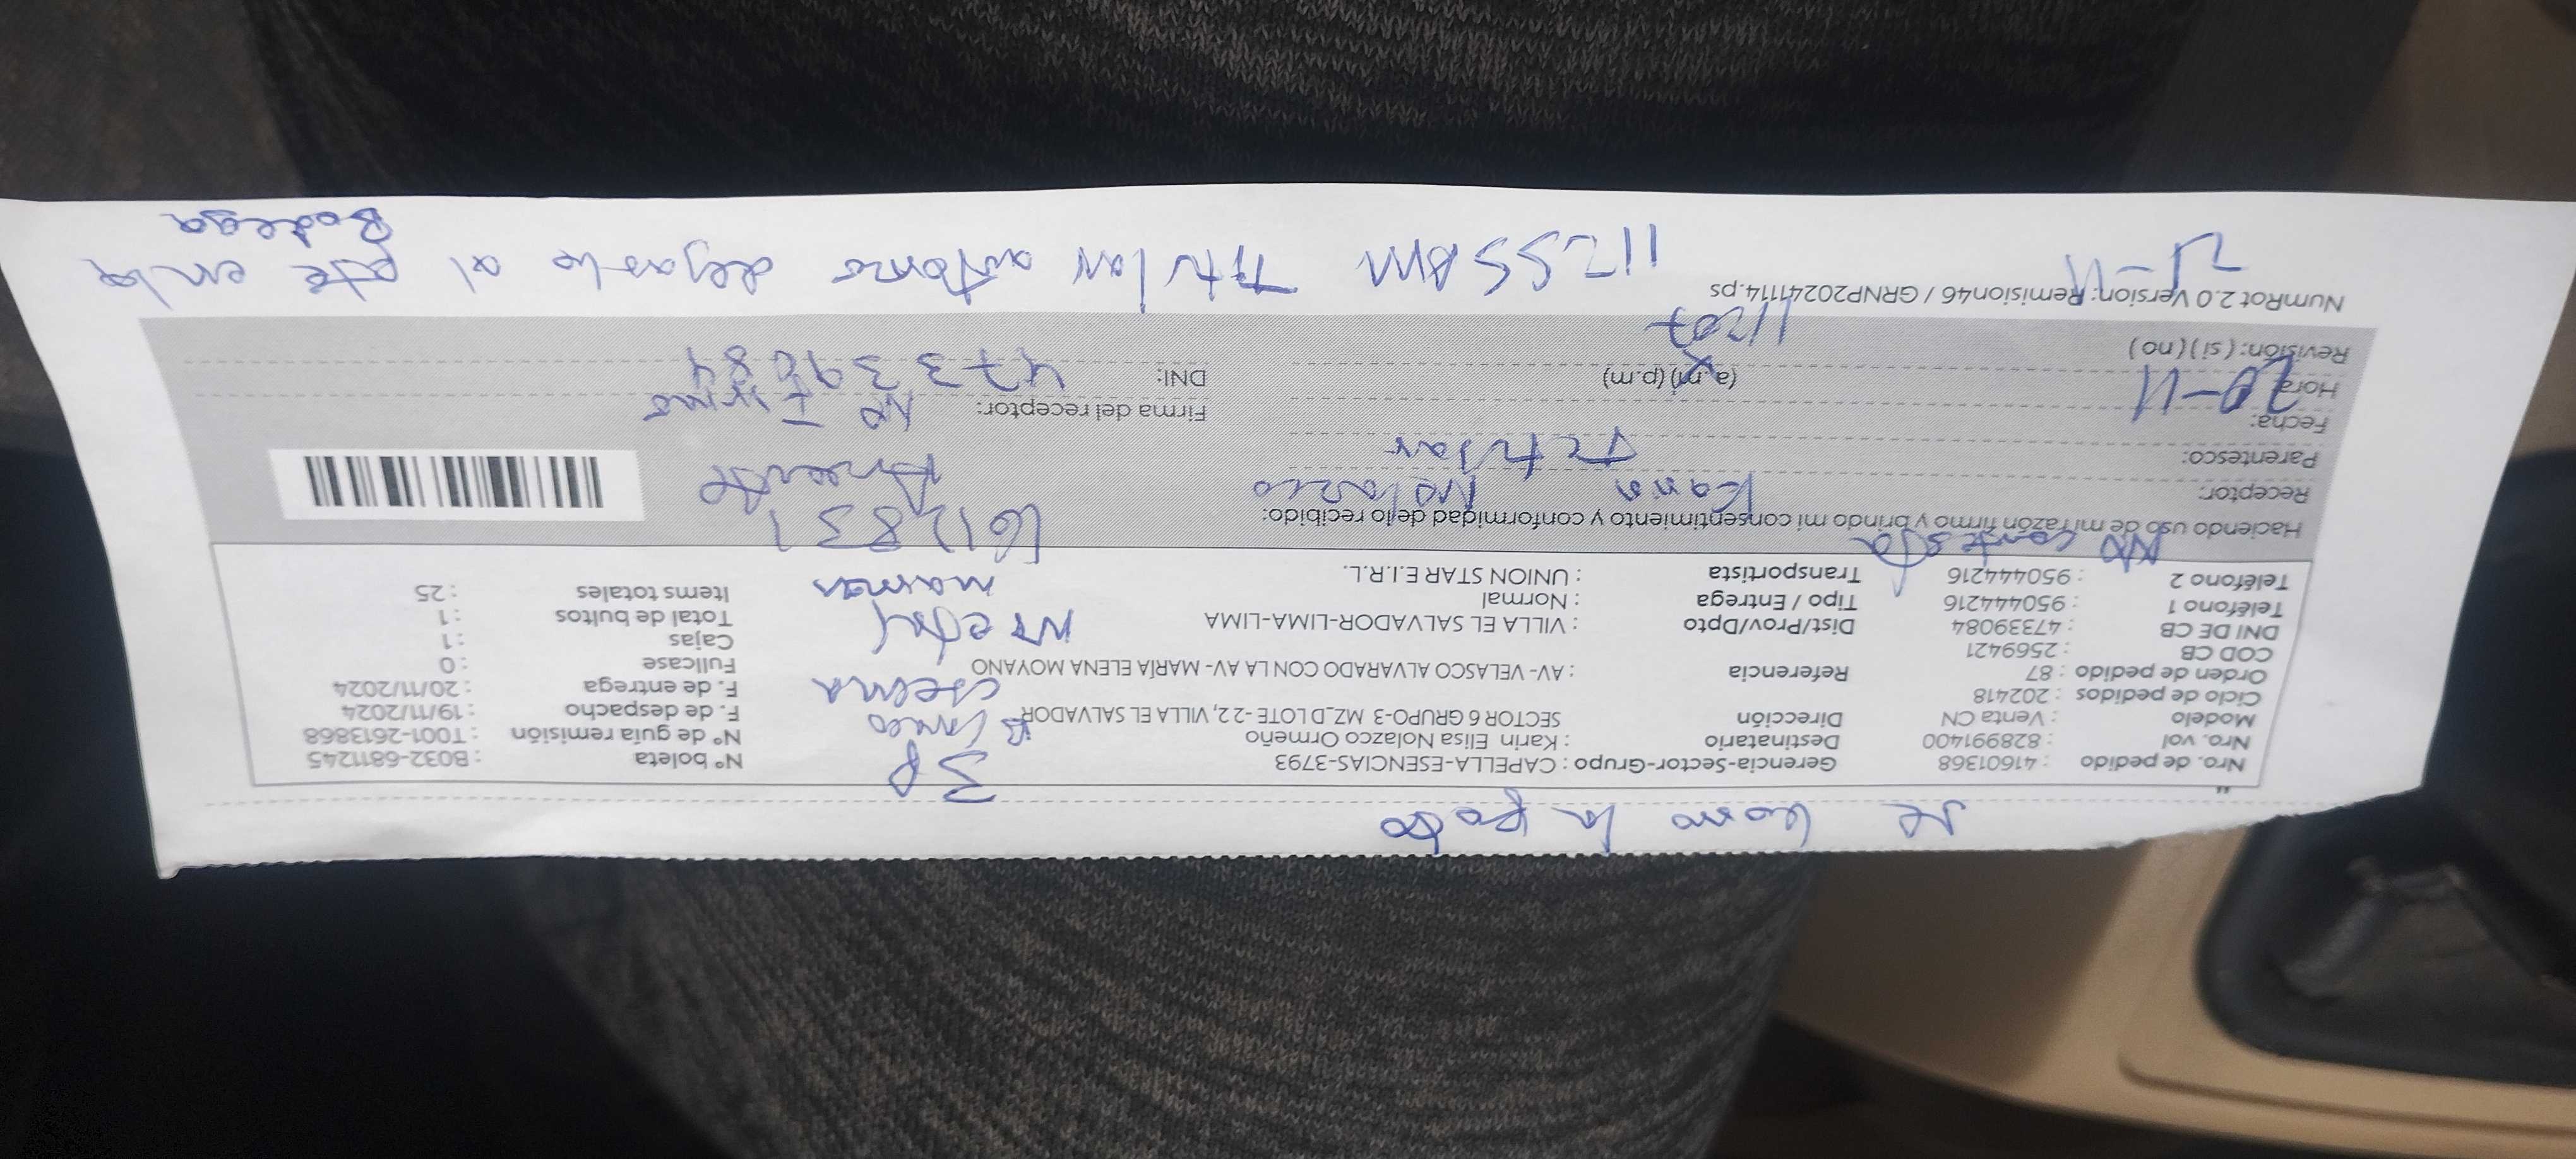 se tomo la foto
Nro. de pedido : 41601368 Gerencia-Sector-Grupo : CAPELLA-ESENCIAS-3793 3P Nº boleta : B032-6811245
Nro. vol : 828991400 Destinatario : Karin Elisa Nolazco Ormeño Blanco Nº de guía remisión : T001-2613868
Modelo : Venta CN Dirección SECTOR 6 GRUPO-3 MZ_D LOTE -22, VILLA EL SALVADOR F. de despacho : 19/11/2024
Ciclo de pedidos : 202418 F. de entrega : 20/11/2024
Orden de pedido : 87 Referencia : AV- VELASCO ALVARADO CON LA AV- MARÍA ELENA MOYANO Fullcase : 0
COD CB : 2569421 Cajas : 1
DNI DE CB : 47339084 Dist/Prov/Dpto : VILLA EL SALVADOR-LIMA-LIMA Total de bultos : 1
Teléfono 1 : 950444216 Tipo / Entrega : Normal Items totales : 25
Teléfono 2 : 950444216 Transportista : UNION STAR E.I.R.L. marron
No contesta 1612831
Haciendo uso de mi razón firmo y brindo mi consentimiento y conformidad de lo recibido:
Receptor: Karin Nolazco
Parentesco: Titular
Fecha: 20-11 Firma del receptor: No Firmo
Hora: (a.m) (p.m) DNI: 47339084
Revisión: ( si ) ( no ) 11:07
NumRot 2.0 Version: Remision46 / GRNP20241114.ps
11:55 AM Titular autorizo dejarlo al de en la
Bodega